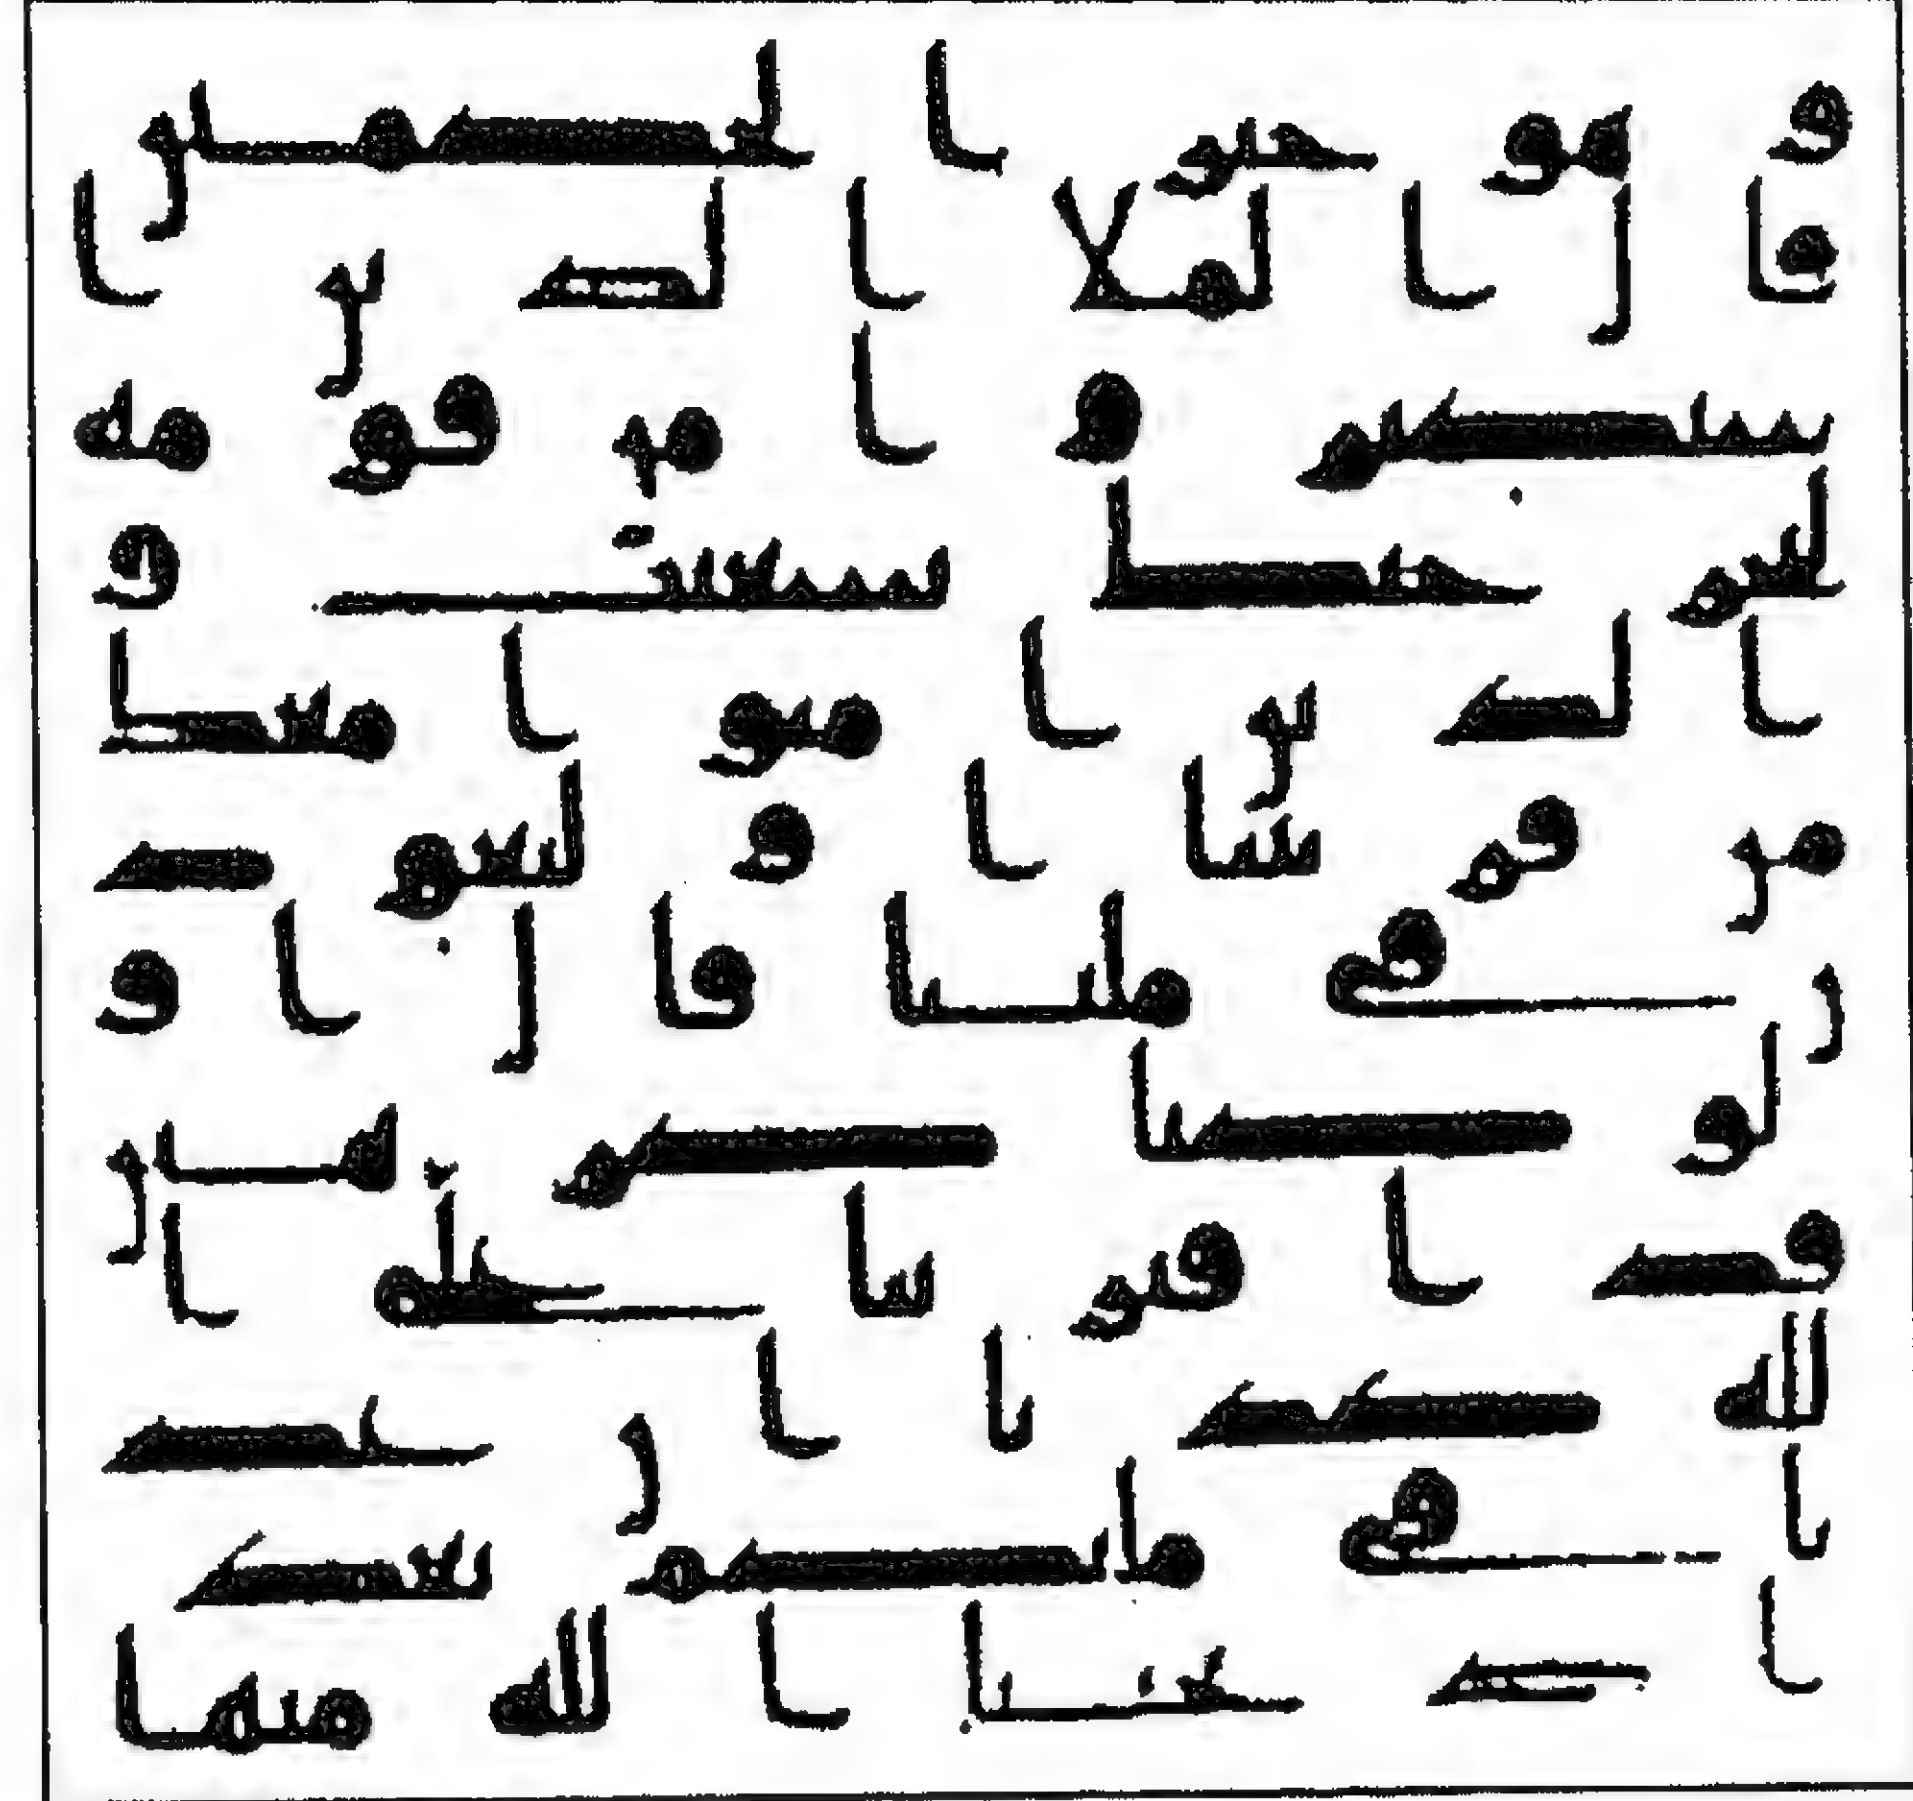 وهو خير الحكمين
قال الملا الذين ا
ستكبروا من قومه
لنخرجنك يشعيب و
الذين امنوا معك
من قريتنا او لتعود
ن في ملتنا قال او
لو كنا كرهين
قد افترينا على ا
لله كذبا ان عد
نا في ملتكم بعد
اذ نجنا الله منها